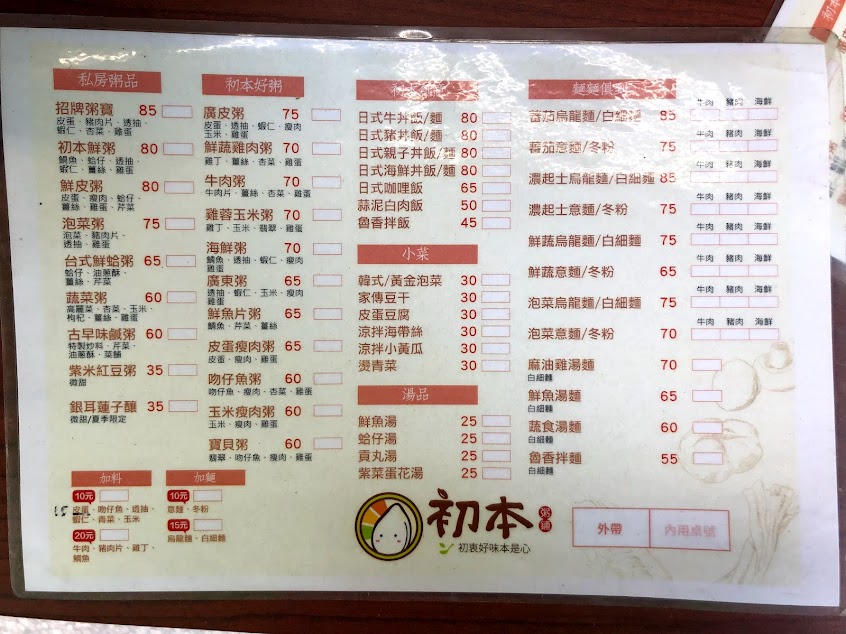 私房粥品
招牌粥寶 85
皮蛋、豬肉片、透抽、
蝦仁、杏菜、雞蛋
初本鮮粥 80
鯛魚、蛤仔、透抽、
蝦仁、薑絲、雞蛋
鮮皮粥 80
皮蛋、瘦肉、蛤仔、
薑絲、雞蛋、芹菜
泡菜粥 75
泡菜、豬肉片、
透抽、雞蛋
台式鮮蛤粥 65
蛤仔、油蔥酥、
薑絲、芹菜
蔬菜粥 60
高麗菜、杏菜、玉米、
枸杞、薑絲、雞蛋
古早味鹹粥 60
特製炒料、芹菜、
油蔥酥、菜脯
紫米紅豆粥 35
微甜
銀耳蓮子釀 35
微甜/夏季限定
初本好粥
廣皮粥 75
皮蛋、透抽、蝦仁、瘦肉
玉米、雞蛋
鮮蔬雞肉粥 70
雞丁、薑絲、杏菜、雞蛋
牛肉粥 70
牛肉片、薑絲、杏菜、雞蛋
雞蓉玉米粥 70
雞丁、玉米、翡翠、雞蛋
海鮮粥 70
鯛魚、透抽、蝦仁、瘦肉
雞蛋
廣東粥 65
透抽、蝦仁、玉米、瘦肉
雞蛋
鮮魚片粥 65
鯛魚、芹菜、薑絲
皮蛋瘦肉粥 65
皮蛋、瘦肉、雞蛋
吻仔魚粥 60
吻仔魚、杏菜、雞蛋
玉米瘦肉粥 60
玉米、瘦肉、雞蛋
寶貝粥 60
翡翠、吻仔魚、瘦肉、雞蛋
日式牛丼飯/麵 80
日式豬丼飯/麵 80
日式親子丼飯/麵 80
日式海鮮丼飯/麵 80
日式咖哩飯 65
蒜泥白肉飯 50
魯香拌飯 45
小菜
韓式/黃金泡菜 30
家傳豆干 30
皮蛋豆腐 30
涼拌海帶絲 30
涼拌小黃瓜 30
燙青菜 30
湯品
鮮魚湯 25
蛤仔湯 25
貢丸湯 25
紫菜蛋花湯 25
麵麵俱
牛肉 豬肉 海鮮
蕃茄烏龍麵/白細麵 85
牛肉 豬肉 海鮮
蕃茄意麵/冬粉 75
牛肉 豬肉 海鮮
濃起士烏龍麵/白細麵 85
牛肉 豬肉 海鮮
濃起士意麵/冬粉 75
牛肉 豬肉 海鮮
鮮蔬烏龍麵/白細麵 75
牛肉 豬肉 海鮮
鮮蔬意麵/冬粉 65
牛肉 豬肉 海鮮
泡菜烏龍麵/白細麵 75
牛肉 豬肉 海鮮
泡菜意麵/冬粉 70
麻油雞湯麵 70
白細麵
鮮魚湯麵 65
白細麵
蔬食湯麵 60
白細麵
魯香拌麵 55
白細麵
加料
10元
皮蛋、吻仔魚、透抽、
蝦仁、青菜、玉米
20元
牛肉、豬肉片、雞丁、
鯛魚
加麵
10元
意麵、冬粉
15元
烏龍麵、白細麵
初本
粥鋪
初衷好味本是心
外帶 內用桌號